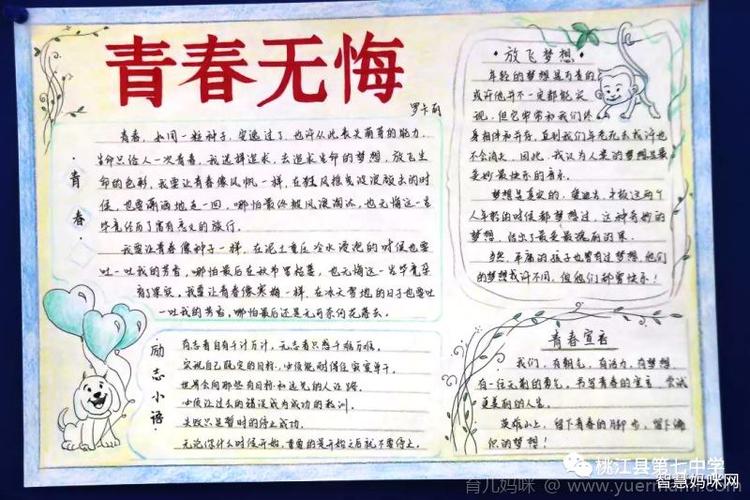 青春无悔
罗卡丽
·青春·
青春,如同一粒种子,实逸过了,也许从此丧失萌芽的能力.
生命只给人一次青春,我选择追求,去追求生命的梦想,放飞生
命的色彩,我要让青春像风帆一样,在狂风推曳波浪颠去的时
候,也要潇洒地走一回,哪怕最终被风浪淘汰,也无悔这一生
毕竟经历了富有意义的旅行.
我要让青春像种子一样,在泥土重压冷水浸泡的时候也要
吐一吐我的芳香,哪怕最后在秋节里枯萎,也无悔这一生毕竟朵
有了果实.我要让青春像寒梅一样,在冰天雪地的日子也要吐
一吐我的芳香,哪怕最后还是无可奈何花落去.
·励志小语·
有志者自有千计万计,无志者只感千难万难.
实现自己既定的目标,必须能耐得住寂寞单干.
世界会向那些有目标和远见的人让路.
必须让过去的错误成为成功的教训.
失败只是暂时的停止成功.
无论你什么时候开始,重要的是开始之后就不要停止.
·放飞梦想·
年轻的梦想是可贵的
或许他并不一定都能实
现,但它常常和我们终
身相伴和并存,直到我们年老死去或许也
不会消失,因此,我认为人类的梦想是最
美妙最快乐的音乐.
梦想是真实的,
人年轻的时候都梦想过,这种奇妙的
梦想,结出了最美最瑰丽的果.
当然,平庸的孩子也曾有过梦想,他们
的梦想或许不同,但他们都曾快乐!
青春宣言
我们,有朝气,有活力,有梦想,
有一往无前的勇气,书写青春的宣言,尝试
更美丽的人生.
英雄山上,留下青春的脚步,留下满
怀的梦想!
桃江县第七中学
育儿妈咪 @ www.yuermami.com
智慧妈咪网